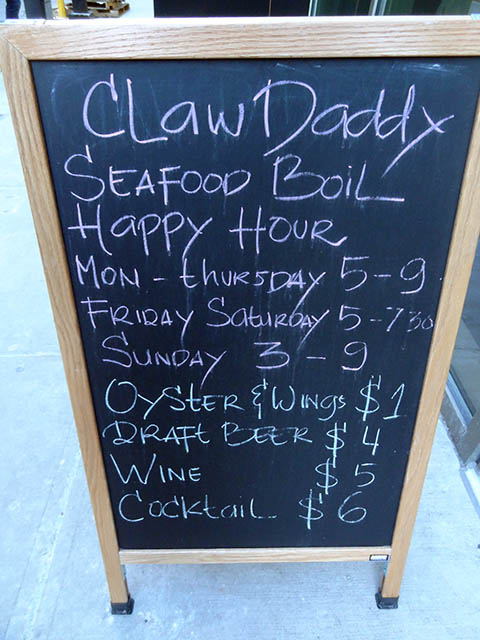 CLaw Daddy
SEAFOOD BOIL
HAPPY HOUR
MON - thURSDAY 5-9
FRIDAY SatURDAY 5-7 30
SUNDAY 3-9
OYSTER & WINGS $1
DRAFt BEER $4
WINE $5
COCKtaiL $6